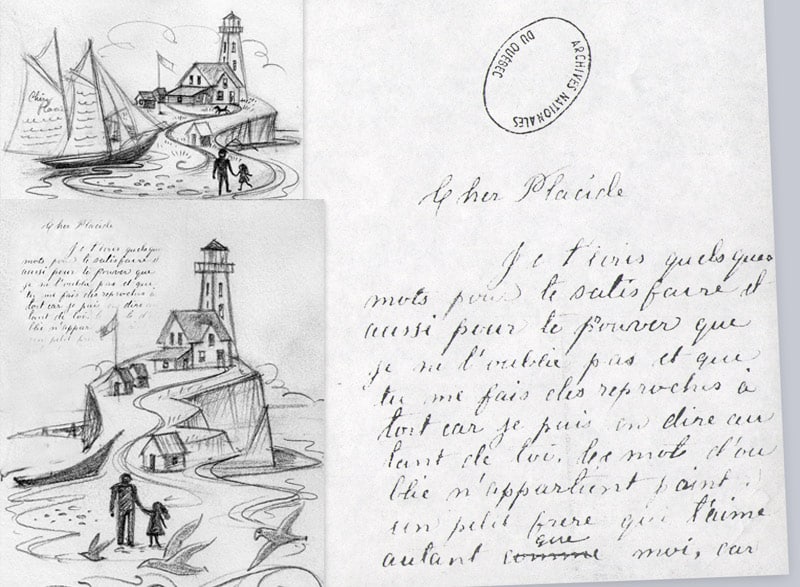 Cher
Placi
Cher Placide
Je t'iris quelque
mots pour te satisfaire e
aussi pour te prouver que
je ne t'oublie pas et que
tu me fais des reproches à
tort car je puis en dire
tant de toi.
blie n'appar
un petit
ARCHIVES NATIONALES
DU QUEBEC
Cher Placide
Je t'iris quelques
mots pour te satisfaire et
aussi pour te prouver que
je ne t'oublie pas et que
tu me fais des reproches à
tort car je puis en dire au
tant de toi. les mots d'ou
blie n'appartient point
un petit frere qui t'aime
que
autant comme moi, car